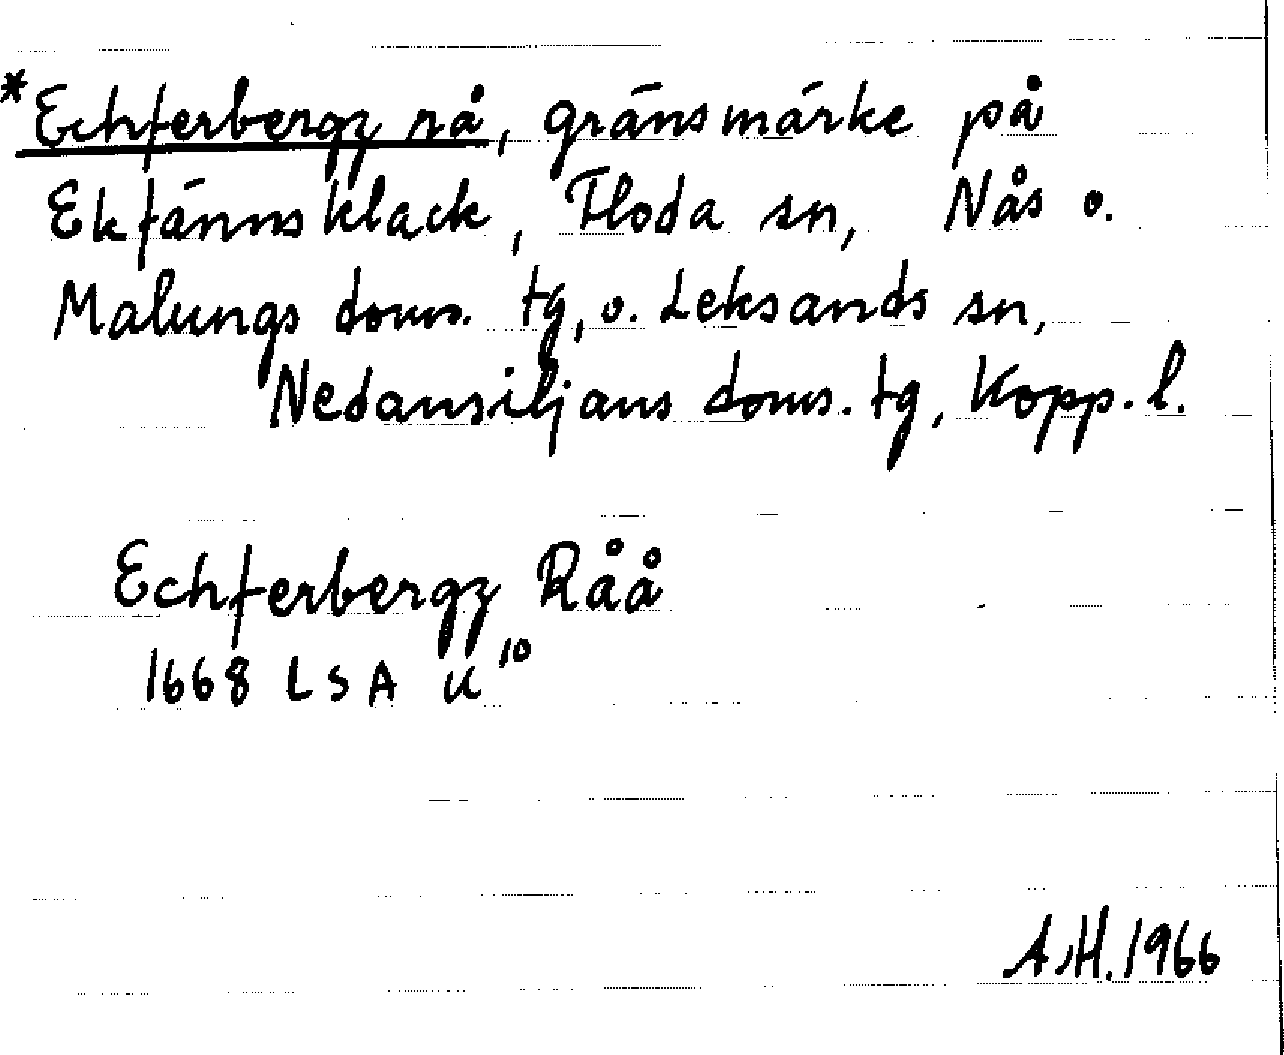 *Echferbergz rå, gränsmärke på
Ekfännsklack, Floda sn, Nås o.
Malungs doms. tg, o. Leksands sn,
Nedansiljans doms. tg, Kopp. l.
Echferbergz Råå
1668 LSA U¹⁰
A.H. 1966